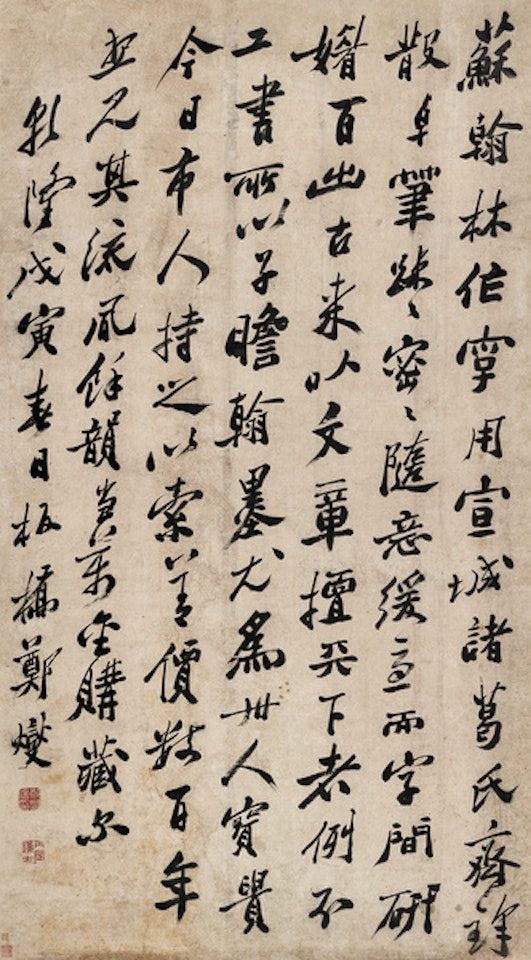 蘇翰林作字用宣城諸葛氏齊鋒
散卓筆踈〻密〻隨意緩急而字間研
媚百出古来以文章擅天下者例不
工書所以子瞻翰墨尤為世人寶貴
今日市人持之以索善價數百年
想見其流風餘韻當萬金購藏尔
乾隆戊寅春日板橋鄭燮